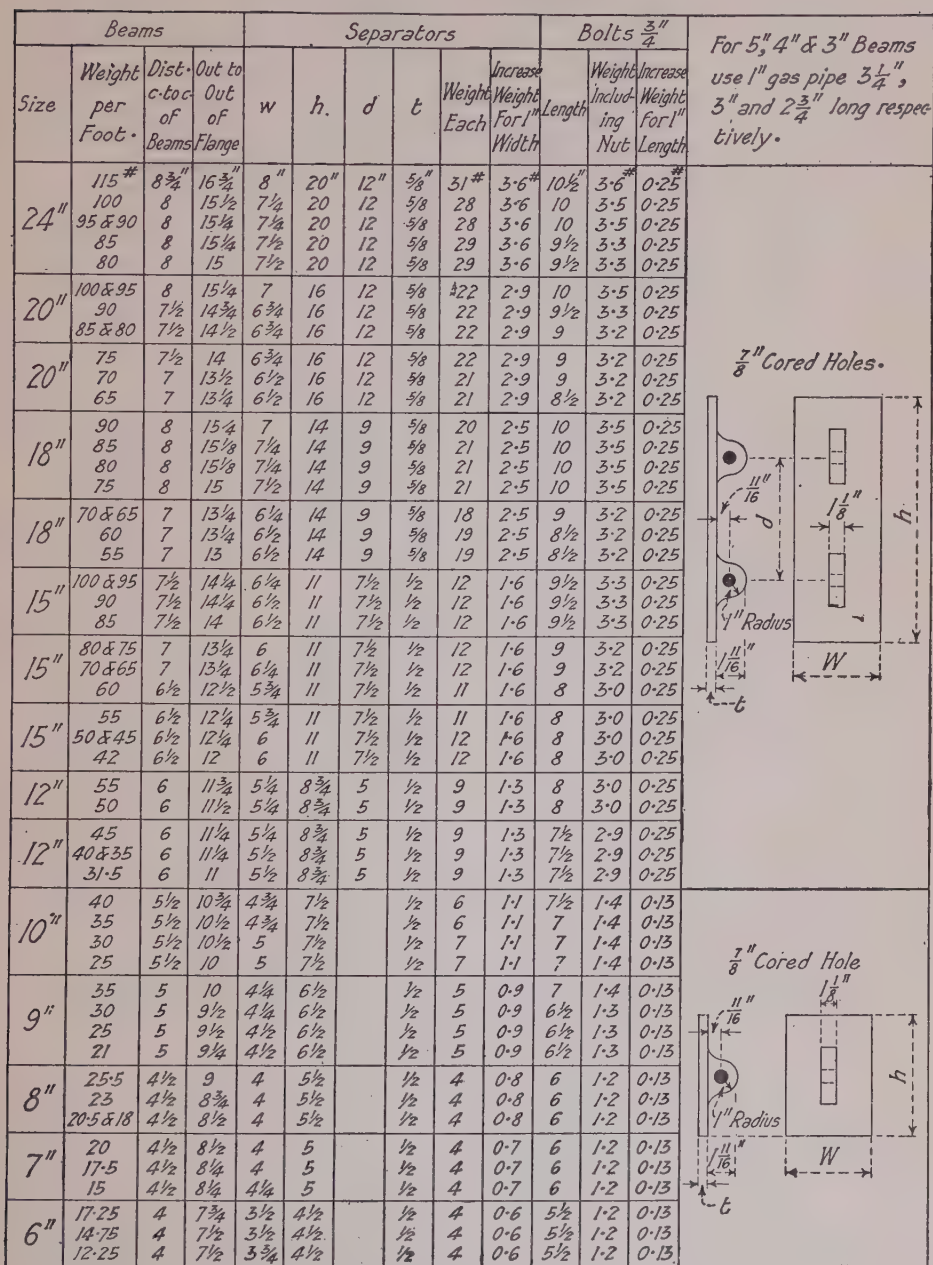 Beams Separators Bolts 3/4"
Size Weight per Foot. Dist. c.to c. of Beams Out to Out of Flange w h. d t Weight Each Increase Weight For 1" Width Length Weight Including Nut Increase Weight for 1" Length
24" 115# 8 3/4" 16 3/4" 8" 20" 12" 5/8" 31# 3.6# 10 1/2" 3.6# 0.25#
100 8 15 1/2 7 1/4 20 12 5/8 28 3.6 10 3.5 0.25
95 & 90 8 15 1/4 7 1/4 20 12 5/8 28 3.6 10 3.5 0.25
85 8 15 1/4 7 1/2 20 12 5/8 29 3.6 9 1/2 3.3 0.25
80 8 15 7 1/2 20 12 5/8 29 3.6 9 1/2 3.3 0.25
20" 100 & 95 8 15 1/4 7 16 12 5/8 22 2.9 10 3.5 0.25
90 7 1/2 14 3/4 6 3/4 16 12 5/8 22 2.9 9 1/2 3.3 0.25
85 & 80 7 1/2 14 1/2 6 3/4 16 12 5/8 22 2.9 9 3.2 0.25
20" 75 7 1/2 14 6 3/4 16 12 5/8 22 2.9 9 3.2 0.25
70 7 13 1/2 6 1/2 16 12 5/8 21 2.9 9 3.2 0.25
65 7 13 1/4 6 1/2 16 12 5/8 21 2.9 8 1/2 3.2 0.25
18" 90 8 15 1/4 7 14 9 5/8 20 2.5 10 3.5 0.25
85 8 15 1/8 7 1/4 14 9 5/8 21 2.5 10 3.5 0.25
80 8 15 1/8 7 1/4 14 9 5/8 21 2.5 10 3.5 0.25
75 8 15 7 1/2 14 9 5/8 21 2.5 10 3.5 0.25
18" 70 & 65 7 13 1/4 6 1/4 14 9 5/8 18 2.5 9 3.2 0.25
60 7 13 1/4 6 1/2 14 9 5/8 19 2.5 8 1/2 3.2 0.25
55 7 13 6 1/2 14 9 5/8 19 2.5 8 1/2 3.2 0.25
15" 100 & 95 7 1/2 14 1/4 6 1/4 11 7 1/2 1/2 12 1.6 9 1/2 3.3 0.25
90 7 1/2 14 1/4 6 1/2 11 7 1/2 1/2 12 1.6 9 1/2 3.3 0.25
85 7 1/2 14 6 1/2 11 7 1/2 1/2 12 1.6 9 1/2 3.3 0.25
15" 80 & 75 7 13 1/4 6 11 7 1/2 1/2 12 1.6 9 3.2 0.25
70 & 65 7 13 1/4 6 1/4 11 7 1/2 1/2 12 1.6 9 3.2 0.25
60 6 1/2 12 1/2 5 3/4 11 7 1/2 1/2 11 1.6 8 3.0 0.25
15" 55 6 1/2 12 1/4 5 3/4 11 7 1/2 1/2 11 1.6 8 3.0 0.25
50 & 45 6 1/2 12 1/4 6 11 7 1/2 1/2 12 1.6 8 3.0 0.25
42 6 1/2 12 6 11 7 1/2 1/2 12 1.6 8 3.0 0.25
12" 55 6 11 3/4 5 1/4 8 3/4 5 1/2 9 1.3 8 3.0 0.25
50 6 11 1/2 5 1/4 8 3/4 5 1/2 9 1.3 8 3.0 0.25
12" 45 6 11 1/4 5 1/4 8 3/4 5 1/2 9 1.3 7 1/2 2.9 0.25
40 & 35 6 11 1/4 5 1/2 8 3/4 5 1/2 9 1.3 7 1/2 2.9 0.25
31.5 6 11 5 1/2 8 3/4 5 1/2 9 1.3 7 1/2 2.9 0.25
10" 40 5 1/2 10 3/4 4 3/4 7 1/2 1/2 6 1.1 7 1/2 1.4 0.13
35 5 1/2 10 1/2 4 3/4 7 1/2 1/2 6 1.1 7 1.4 0.13
30 5 1/2 10 1/2 5 7 1/2 1/2 7 1.1 7 1.4 0.13
25 5 1/2 10 5 7 1/2 1/2 7 1.1 7 1.4 0.13
9" 35 5 10 4 1/4 6 1/2 1/2 5 0.9 7 1.4 0.13
30 5 9 1/2 4 1/4 6 1/2 1/2 5 0.9 6 1/2 1.3 0.13
25 5 9 1/2 4 1/2 6 1/2 1/2 5 0.9 6 1/2 1.3 0.13
21 5 9 1/4 4 1/2 6 1/2 1/2 5 0.9 6 1/2 1.3 0.13
8" 25.5 4 1/2 9 4 5 1/2 1/2 4 0.8 6 1.2 0.13
23 4 1/2 8 3/4 4 5 1/2 1/2 4 0.8 6 1.2 0.13
20.5 & 18 4 1/2 8 1/2 4 5 1/2 1/2 4 0.8 6 1.2 0.13
7" 20 4 1/2 8 1/2 4 5 1/2 4 0.7 6 1.2 0.13
17.5 4 1/2 8 1/4 4 5 1/2 4 0.7 6 1.2 0.13
15 4 1/2 8 1/4 4 1/4 5 1/2 4 0.7 6 1.2 0.13
6" 17.25 4 7 3/4 3 1/2 4 1/2 1/2 4 0.6 5 1/2 1.2 0.13
14.75 4 7 1/2 3 1/2 4 1/2 1/2 4 0.6 5 1/2 1.2 0.13
12.25 4 7 1/2 3 3/4 4 1/2 1/2 4 0.6 5 1/2 1.2 0.13
For 5", 4" & 3" Beams
use 1" gas pipe 3 1/4",
3" and 2 3/4" long respec-
tively.
7/8" Cored Holes.
11/16"
d
1 1/8"
h
1" Radius
1 11/16"
W
t
7/8" Cored Hole
1 1/8"
11/16"
h
1" Radius
1 11/16"
W
t